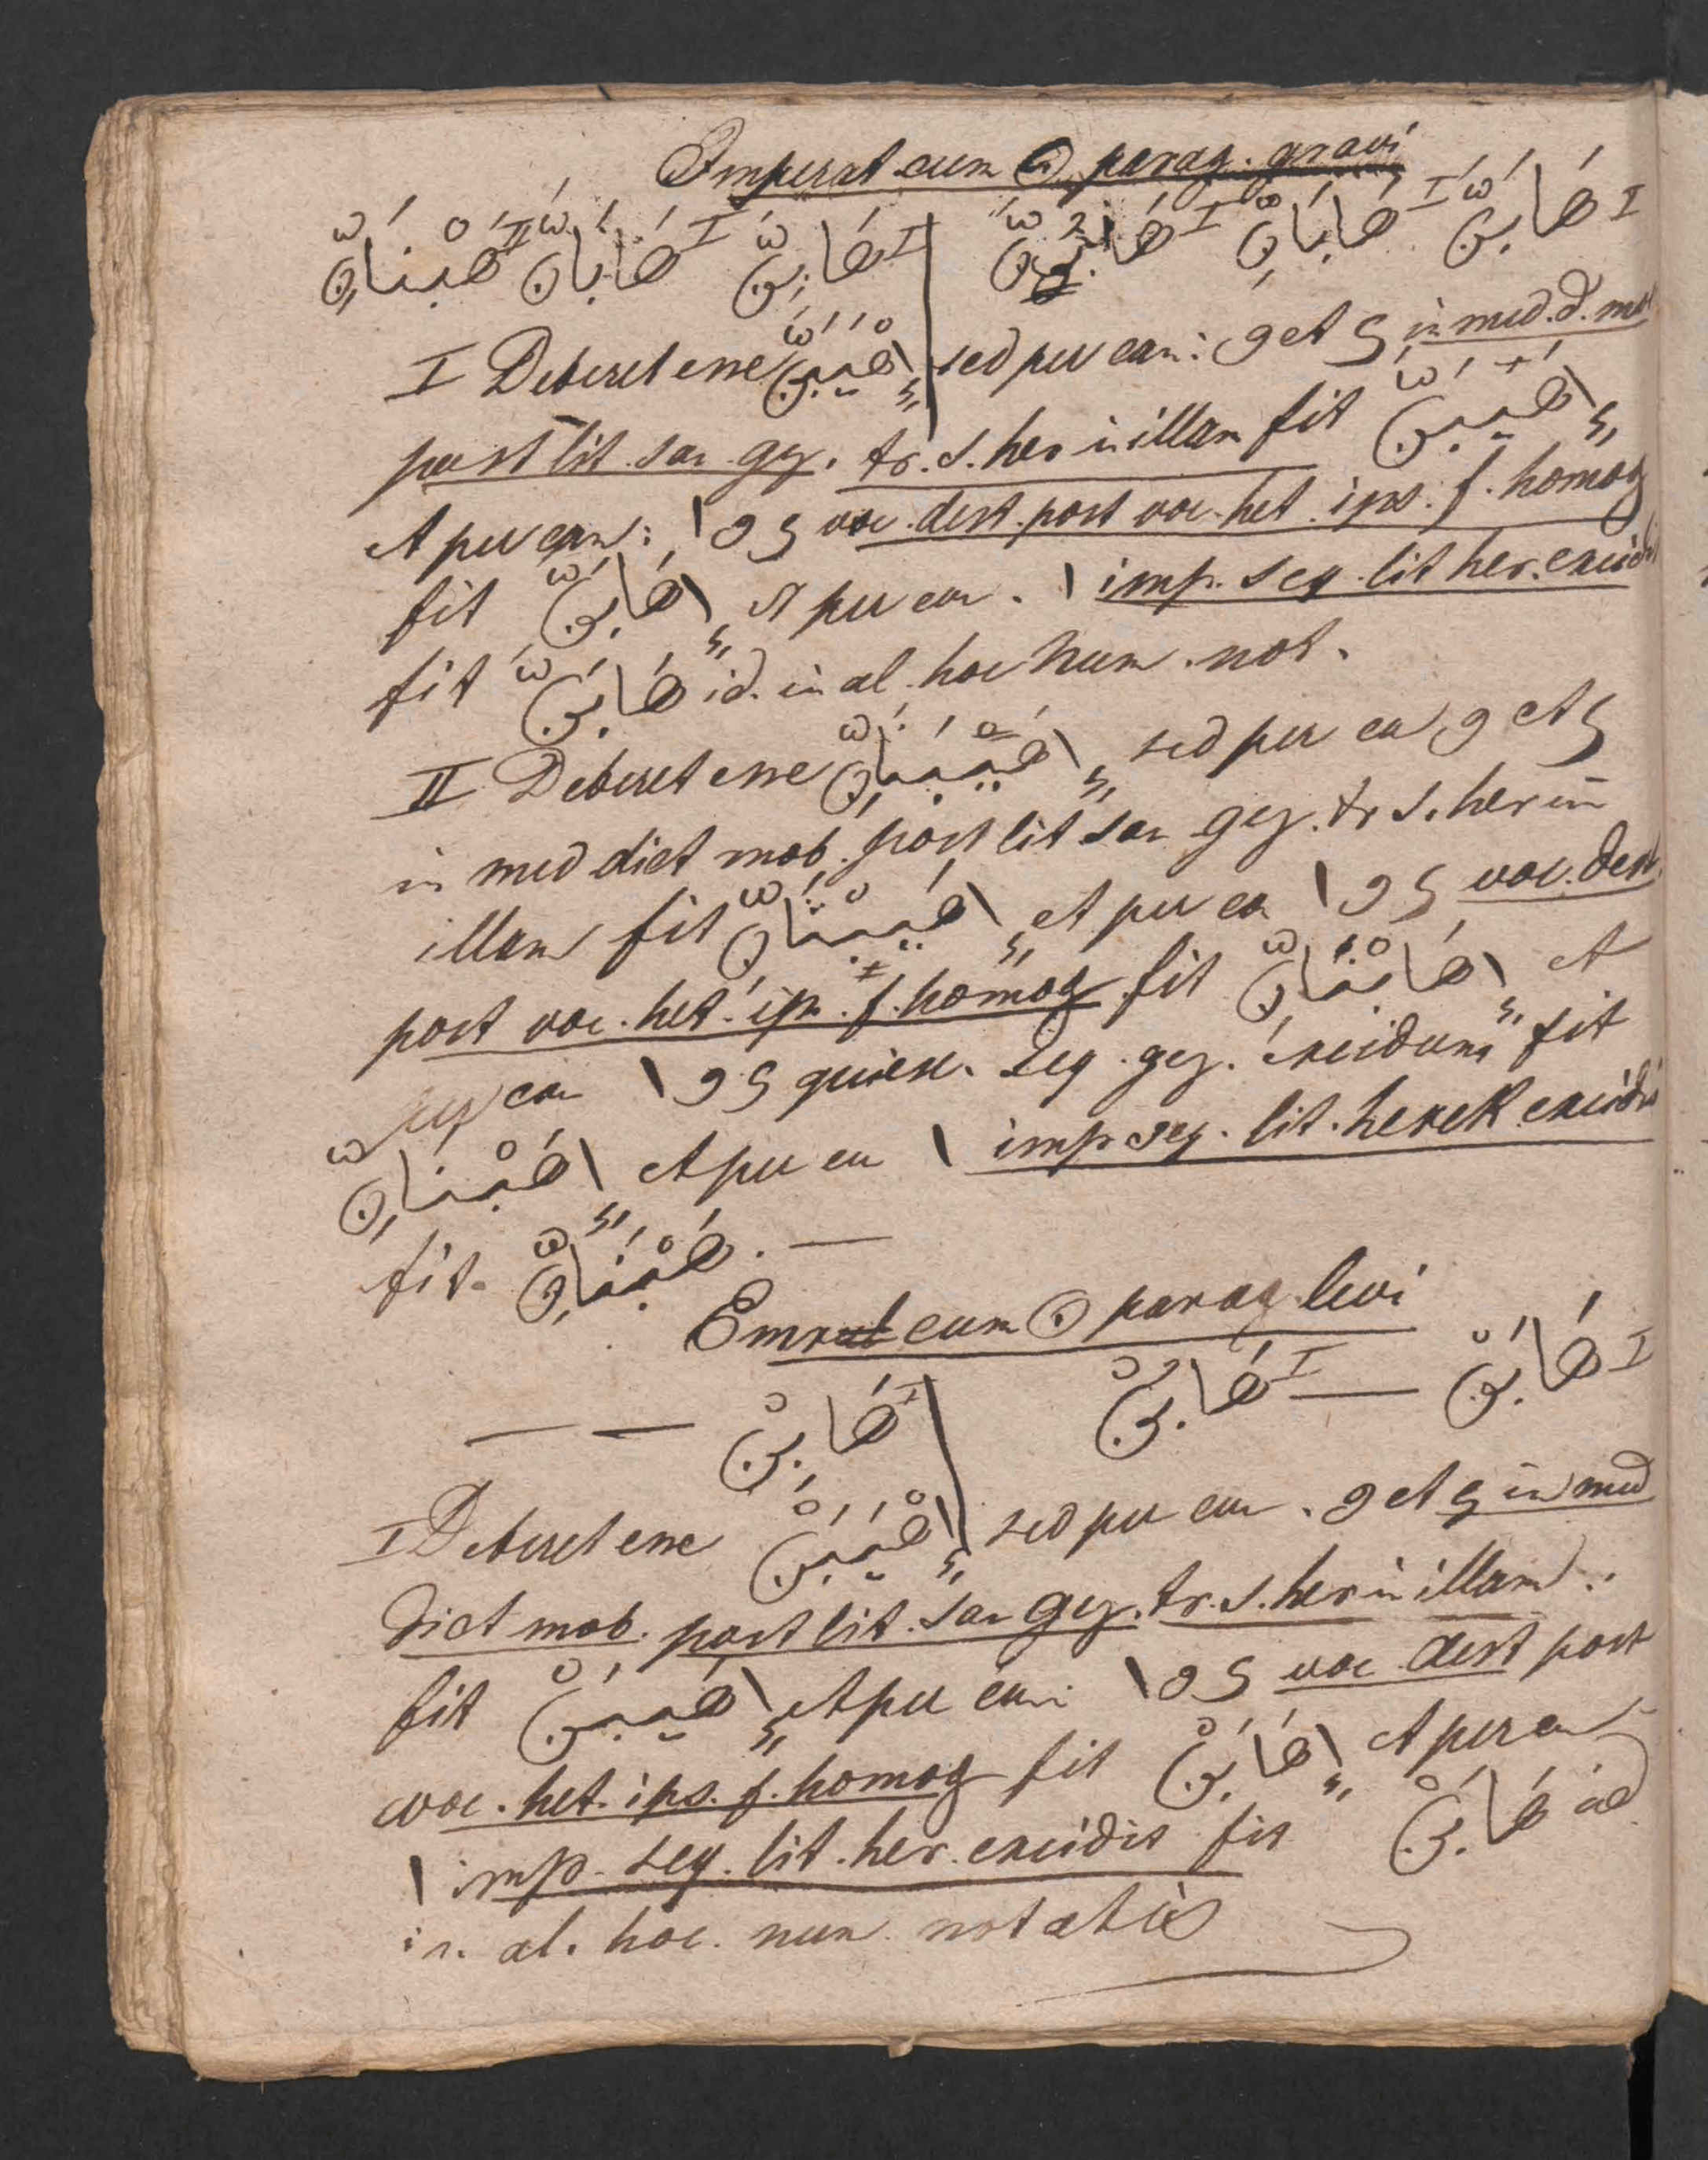 Imperat cum ن parag. gravi
I هَابَنَّ I هَابَانِّ I هَابُنَّ | I هَابِنَّ I هَابَانِّ II هَبْنَانِّ
I Deberet esse اِهْيَبَنَّ sed per can: و et ی in med. d. mob
post lit. san gez. tr. s. her in illam fit اِهَيبَنَّ
et per can: ا و ی voc. dest. post voc. het. ips. f. homog
fit اِهَابَنَّ et per can. ا imp. seq. lit her. excidit
fit هَابَنَّ id. in al. hoc num. not.
II Deberet esse اِهْيَبْنَانِّ sed per can و et ی
in med dict mob. post lit san gez. tr s. her in
illam fit اِهَيبْنَانِّ et per can ا و ی voc. dest.
post voc. het. ips. f. homog fit اِهَابْنَانِّ et
per can ا و ی quiesc. seq. gez. excidunt fit
اِهَبْنَانِّ et per can ا imp seq. lit. herek excidit
fit. هَبْنَانِّ . —
Emrat cum ن parag levi
I هَابَنْ — I هَابُنْ | I هَابِنْ — —
I Deberet esse اِهْيَبَنْ sed per can. و et ی in med
dict mob. post lit. san gez. tr. s. her in illam.
fit اِهَيبَنْ et per can: ا و ی voc dest post
voc. het. ips. f. homog fit اِهَابَنْ et per can
ا imp. seq. lit. her. excidit fit هَابَنْ id
in. al. hoc. num notatis